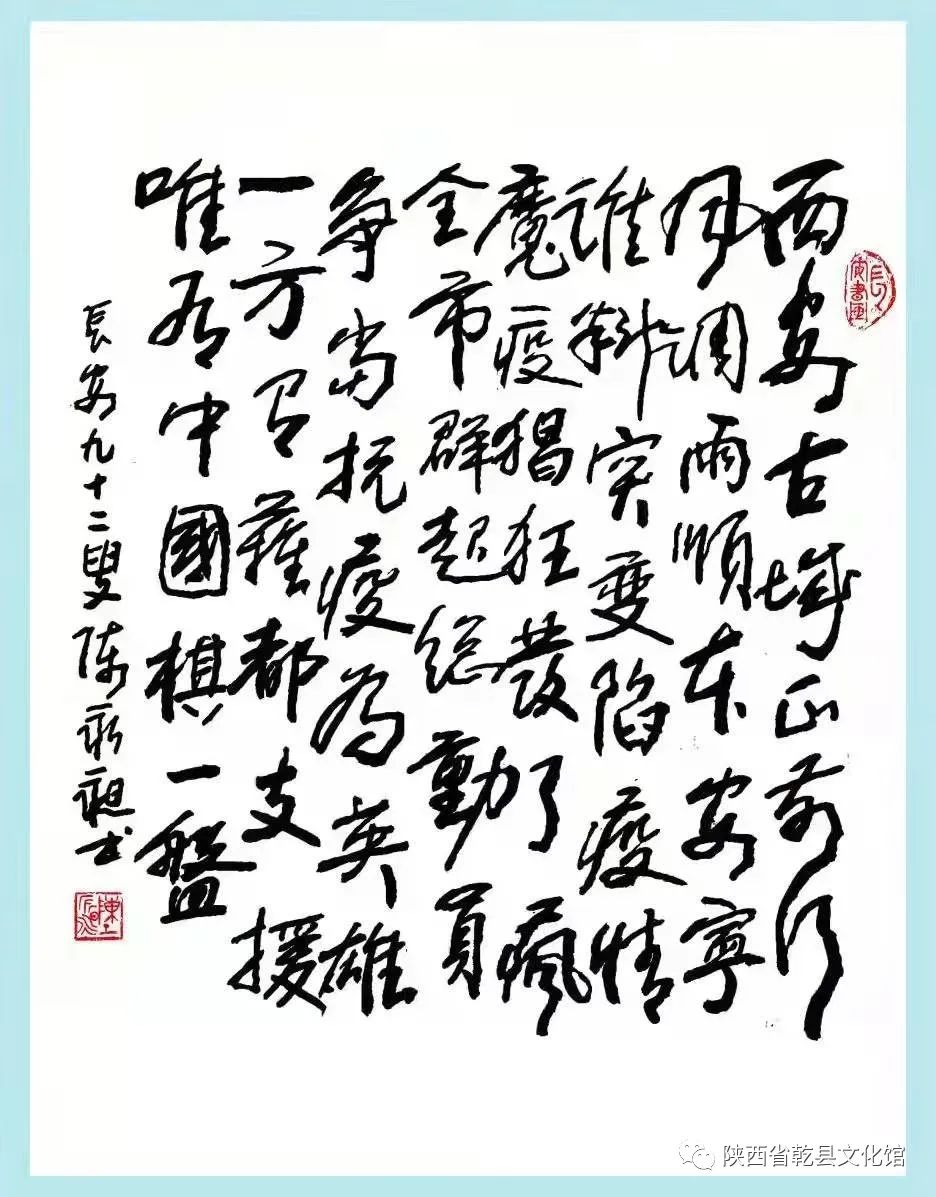 西安古城正前行
风调雨顺本安宁
谁料突变陷疫情
魔疫猖狂發了疯
全市群起总動員
争当抗疫为英雄
一方有难都支援
唯有中國棋一盤
長安九十二叟陈永书
陕西省乾县文化馆